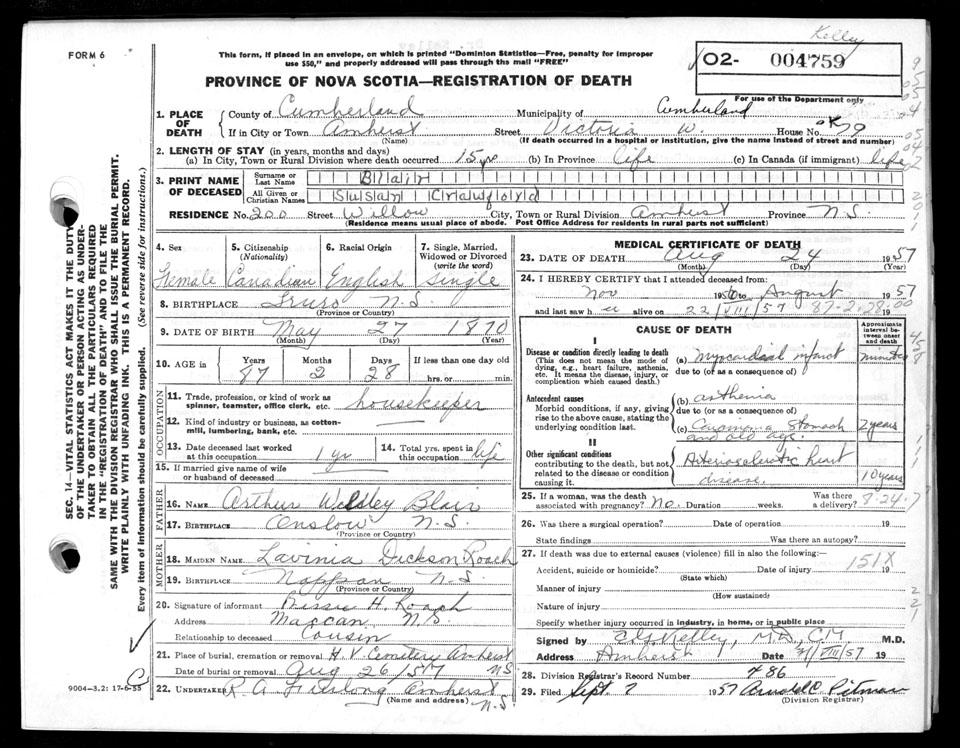 Kelley
FORM 6
This form, if placed in an envelope, on which is printed "Dominion Statistics—Free, penalty for improper
use $50," and properly addressed will pass through the mail "FREE"
O2- 004759
For use of the Department only
PROVINCE OF NOVA SCOTIA—REGISTRATION OF DEATH
1. PLACE OF DEATH
County of Cumberland Municipality of Cumberland
If in City or Town Amherst Street Victoria W. House No. 79
(Name) (If death occurred in a hospital or institution, give the name instead of street and number)
2. LENGTH OF STAY (in years, months and days)
(a) In City, Town or Rural Division where death occurred 15 yrs (b) In Province life (c) In Canada (if immigrant) life
3. PRINT NAME OF DECEASED
Surname or Last Name Blair
All Given or Christian Names Susan Crawford
RESIDENCE No. 200 Street Willow City, Town or Rural Division Amherst Province N.S.
(Residence means usual place of abode. Post Office Address for residents in rural parts not sufficient)
4. Sex Female
5. Citizenship (Nationality) Canadian
6. Racial Origin English
7. Single, Married, Widowed or Divorced (write the word) Single
8. BIRTHPLACE Truro N.S.
(Province or Country)
9. DATE OF BIRTH May 27 1870
(Month) (Day) (Year)
10. AGE in Years 87 Months 2 Days 28 If less than one day old
hrs. or min.
OCCUPATION
11. Trade, profession, or kind of work as spinner, teamster, office clerk, etc. housekeeper
12. Kind of industry or business, as cotton-mill, lumbering, bank, etc.
13. Date deceased last worked at this occupation 1 yr
14. Total yrs. spent in this occupation life
15. If married give name of wife or husband of deceased
FATHER
16. Name Arthur Wesley Blair
17. Birthplace Onslow N.S.
(Province or Country)
MOTHER
18. MAIDEN NAME Lavinia Dickson Roach
19. BIRTHPLACE Nappan N.S.
(Province or Country)
20. Signature of informant Bessie H. Roach
Address Maccan N.S.
Relationship to deceased Cousin
21. Place of burial, cremation or removal H. V. Cemetery Amherst N.S.
Date of burial or removal Aug 26/57
22. UNDERTAKER R. A. Furlong Amherst N.S.
(Name and address)
MEDICAL CERTIFICATE OF DEATH
23. DATE OF DEATH Aug 24 1957
(Month) (Day) (Year)
24. I HEREBY CERTIFY that I attended deceased from:
Nov 1956 to August 1957
and last saw h er alive on 22/VIII/57 87-2-28-00 19
CAUSE OF DEATH
Approximate interval between onset and death
I
Disease or condition directly leading to death
(This does not mean the mode of dying, e.g., heart failure, asthenia, etc. It means the disease, injury, or complication which caused death.)
(a) myocardial infarct minutes
due to (or as a consequence of)
Antecedent causes
Morbid conditions, if any, giving rise to the above cause, stating the underlying condition last.
(b) asthenia
due to (or as a consequence of)
(c) Carcinoma Stomach and old age. 2 years
II
Other significant conditions
contributing to the death, but not related to the disease or condition causing it.
Arteriosclerotic heart disease. 10 years
25. If a woman, was the death associated with pregnancy? No. Duration weeks. Was there a delivery?
8-24-7
26. Was there a surgical operation? Date of operation 19
State findings Was there an autopsy?
27. If death was due to external causes (violence) fill in also the following:—
151X
Accident, suicide or homicide? Date of injury 19
(State which)
Manner of injury
(How sustained)
Nature of injury
Specify whether injury occurred in industry, in home, or in public place
Signed by Kelley, M.D., C.M. M.D.
Address Amherst Date /VIII/57 19
28. Division Registrar's Record Number 486
29. Filed Sept. 7 1957 Pitman
(Division Registrar)
SEC. 14—VITAL STATISTICS ACT MAKES IT THE DUTY
OF THE UNDERTAKER OR PERSON ACTING AS UNDER-
TAKER TO OBTAIN ALL THE PARTICULARS REQUIRED
IN THE "REGISTRATION OF DEATH" AND TO FILE THE
SAME WITH THE DIVISION REGISTRAR WHO SHALL ISSUE THE BURIAL PERMIT.
WRITE PLAINLY WITH UNFADING INK. THIS IS A PERMANENT RECORD.
Every item of information should be carefully supplied. (See reverse side for instructions.)
9004-3.2: 17-6-55